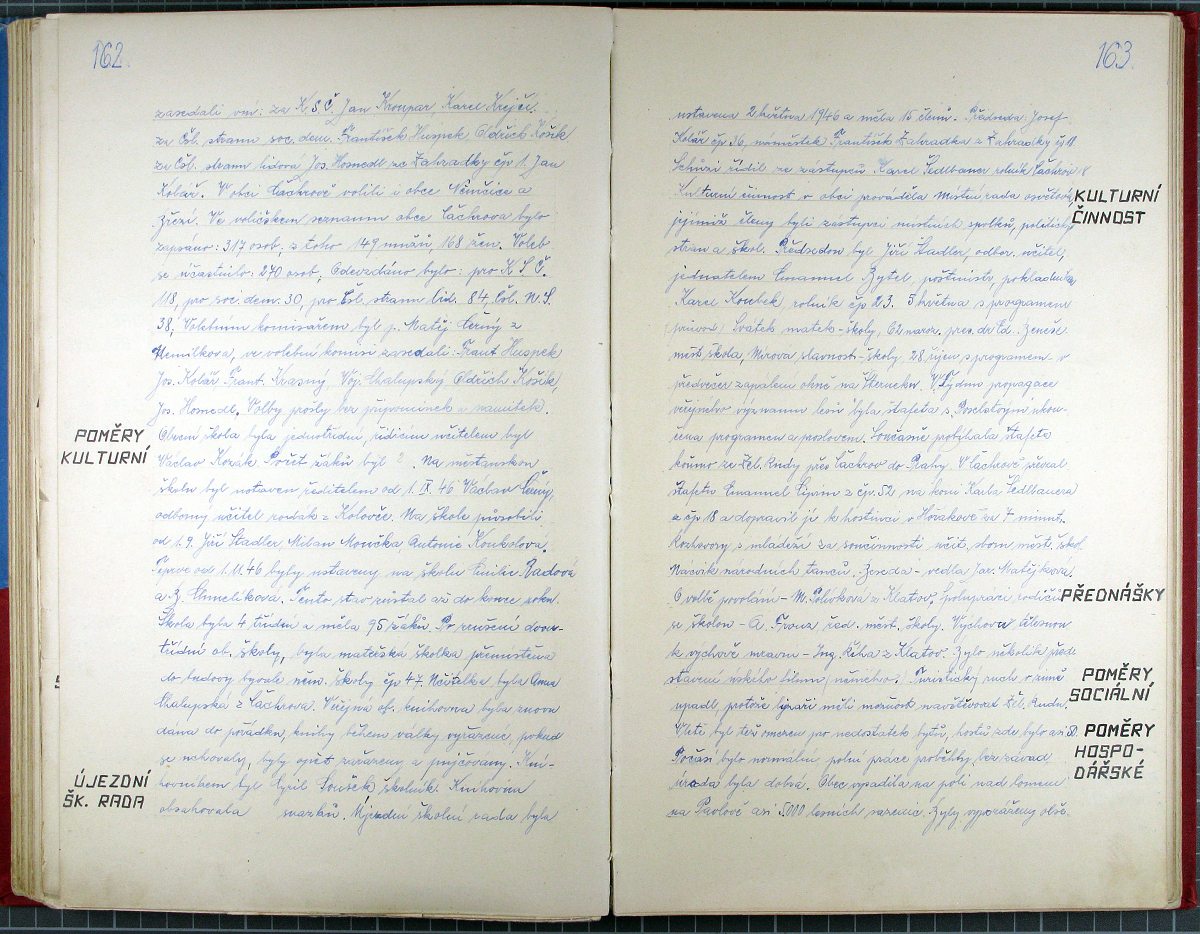 162
zasedali vm: za K.S.Č. Jan Kroupar, Karel Krejčí.
za Čsl. stranu soc. dem. František Huspek, Oldřich Košík
za Čsl. stranu lidovou Jos. Homedl ze Zahradky čp 1. Jan
Kolář. V obci Čachrově volili i obce Němčice a
Zřezí. Ve voličském seznamu obce Čachrova bylo
zapsáno: 317 osob, z toho 149 mužů 168 žen. Voleb
se účastnilo: 270 osob, Odevzdáno bylo: pro K.S.Č.
118, pro soc. dem. 30, pro Čsl. stranu lid. 84, Čsl. N.S.
38, Volebním komisařem byl p. Matěj Černý z
Hemilkova, ve volební komisi zasedali: Frant Huspek
Jos. Kolář Frant. Krasný Voj. Chalupský Oldřich Košík,
Jos. Homedl, Volby prošly bez připomínek a námitek.
POMĚRY
KULTURNÍ
Obecní škola byla jednotřídní, řídícím učitelem byl
Václav Kozák. Počet žáků byl 2 . Na měšťanskou
školu byl ustaven ředitelem od 1. IX. 46 Václav Černý,
odborný učitel rodák z Kolovče. Na škole působili
od 1.9. Jiří Stadler, Milan Moučka Antonie Koukolova.
Teprve od 1.11.46 byly ustaveny na školu Emilie Radová
a Z. Chmelíkova. Tento stav zůstal až do konce roku.
Škola byla 4 třídní a měla 95 žáků. Po zrušení dvou-
třídní ob. školy, byla mateřská školka přemístěna
do budovy bývalé něm. školy čp 47. Učitelka byla Anna
Chalupská z Čachrova. Veřejná ob. knihovna byla znovu
dána do pořádku, knihy během války vyřazené, pokud
se uchovaly, byly opět zařazeny a půjčovány. Kni-
hovníkem byl Cyril Souček školník. Knihovna
ÚJEZDNÍ
ŠK. RADA
obsahovala svazků. Újezdní školní rada byla
163
ustavena 2 května 1946 a měla 15 členů. Předseda Josef
Kolář čp 36, náměstek František Zahradka z Zahradky čp 11.
Schůzi řídil ze zástupců Karel Sedlbauer rolník Čachrov 18
KULTURNÍ
ČINNOST
Kulturní činnost v obci prováděla Místní rada osvětová,
jejímiž členy byli zástupci místních spolků, politick,
stran a škol. Předsedou byl Jiří Stadler, odbor. učitel,
jednatelem Emanuel Zytel, poštmistr, pokladníkem
Karel Koubek, rolník čp 23. 5 května s programem
průvod, Svátek matek-školy, Osl. naroz. pres. dr Ed. Beneše
měst škola, Mírova slavnost-školy. 28 říjen s programem v
předvečer zapálení ohně na Šterneku. V Týdnu propagace
veřejného významu lesů byla štafeta s Poselstvím ukon-
čena programem a proslovem. Současně probíhala štafeta
koňmo ze Žel. Rudy přes Čachrov do Prahy. V Čachrově převzal
štafetu Emanuel Liprim z čp. 52 na koni Karla Sedlbauera
z čp 18 a dopravil ji k hostinci v Hořakově za 7 minut.
Rozhovory s mládeží za součinnosti učit. sboru měšť. škol.
Nácvik národních tanců, Beseda-vedla Jar. Matějková.
PŘEDNÁŠKY
O volbě povolání - M. Polívková z Klatov, Spolupráci rodičů
se školou - A. Franz řed. měšť. školy. Výchovu tělesnou
k výchově mravní - Ing. Říha z Klatov. Bylo několik před
stavení úzkého filmu (němého).
POMĚRY
SOCIÁLNÍ
Turistický ruch v zimě
upadl, protože lyžaři měli možnost navštěvovat Žel. Rudu.
V létě byl též omezen pro nedostatek bytů, hostů zde bylo asi 50.
POMĚRY
HOSPO-
DÁŘSKÉ
Počasí bylo normální polní práce proběhly, bez závad
úroda byla dobrá. Obec vysadila na poli nad lomem
na Pavlově asi 5.000 lesních sazenic. Byly vyoraženy obě-